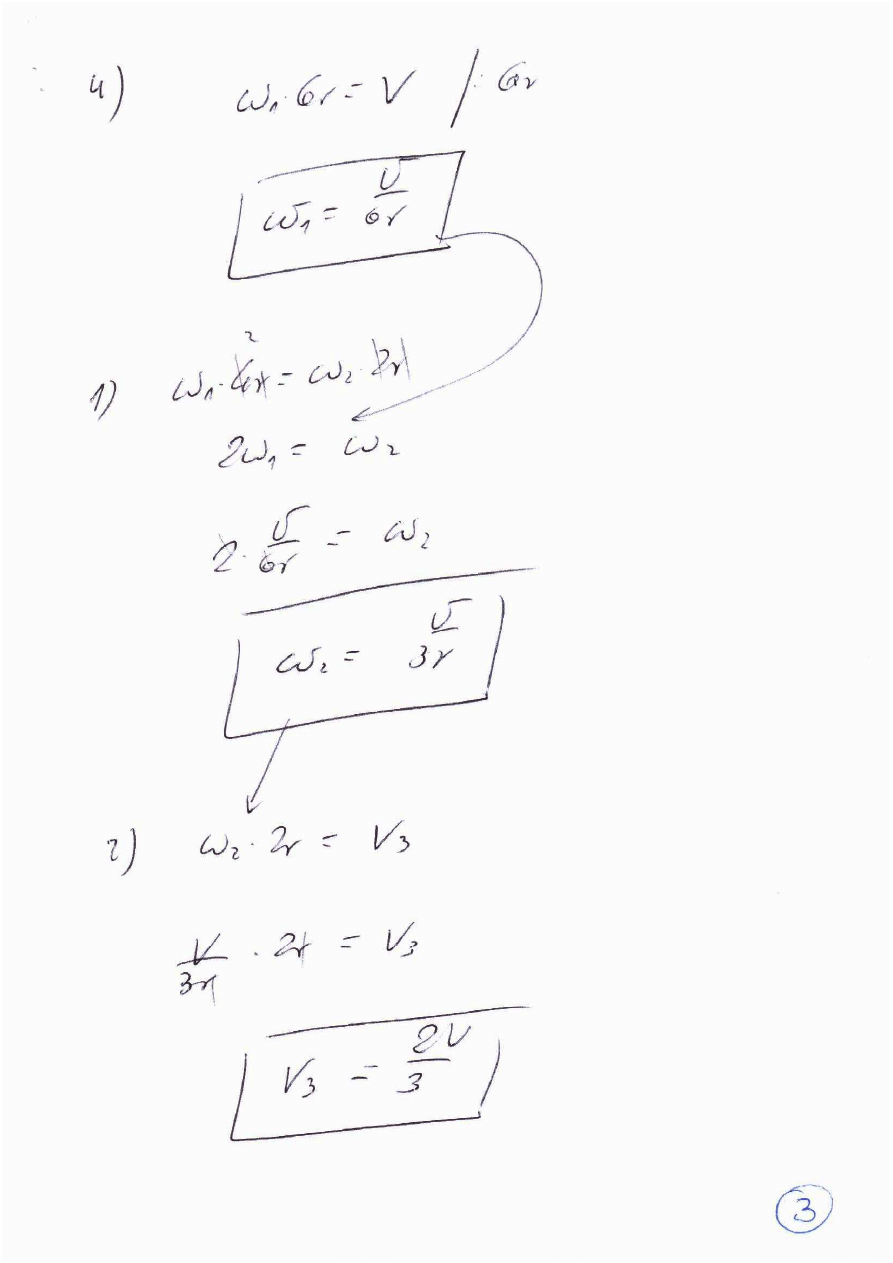 4) ω₁·6r = V /: 6r
ω₁ = v/6r
1) ω₁·4r = ω₂·2r
2
2ω₁ = ω₂
2·v/6r = ω₂
ω₂ = v/3r
2) ω₂·2r = V₃
V/3r · 2r = V₃
V₃ = 2V/3
3